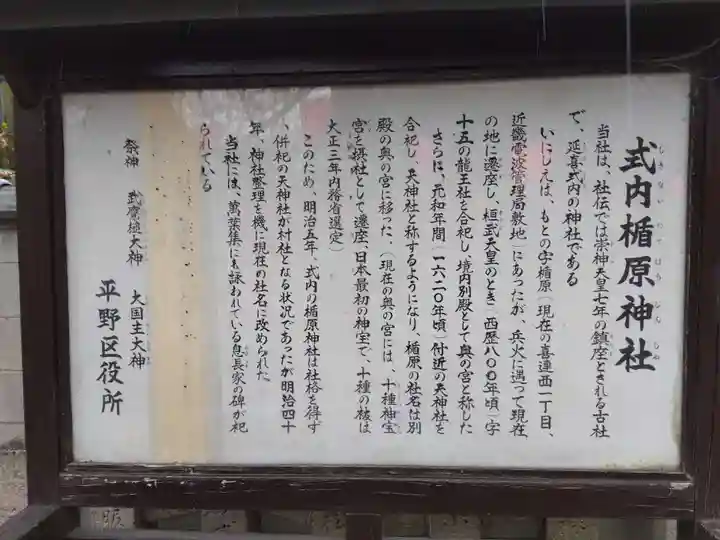 式内楯原神社
しきないたてはらじんじゃ
当社は、社伝では崇神天皇七年の鎮座とされる古社
で、延喜式内の神社である
いにしえは、もとの字楯原(現在の喜連西一丁目、
近畿電波管理局敷地)にあったが、兵火に遇って現在
の地に遷座し、桓武天皇のとき(西歴八〇〇年頃)字
十五の龍王社を合祀し、境内別殿として奥の宮と称した
さらに、元和年間(一六二〇年頃)付近の天神社を
合祀し、天神社と称するようになり、楯原の社名は別
殿の奥の宮に移った、(現在の奥の宮には、十種神宝
宮を摂社として遷座、日本最初の神宝で、十種の祓は
大正三年内務省選定)
このため、明治五年、式内の楯原神社は社格を得ず
、併祀の天神社が村社となる状況であったが明治四十
年、神社整理を機に現在の社名に改められた
当社には、萬葉集にも詠われている息長家の碑が祀
られている
祭神 武甕槌大神 大国主大神
平野区役所